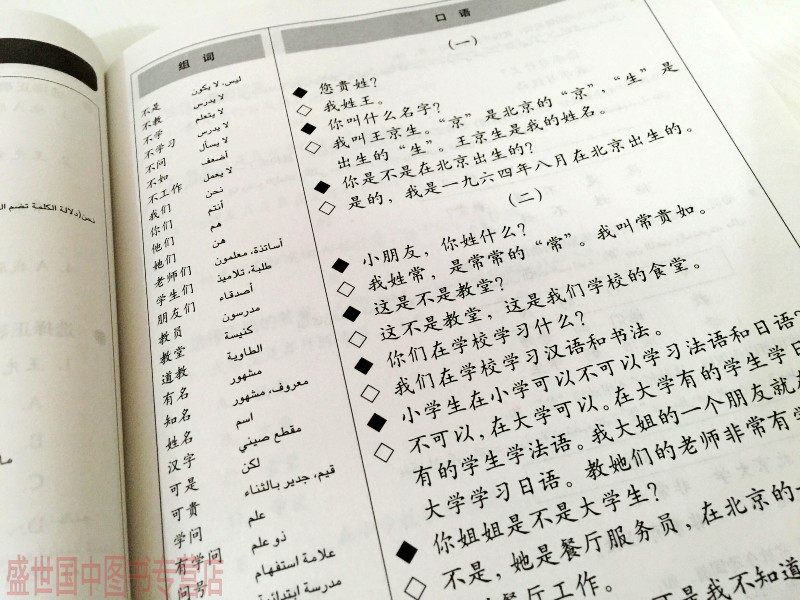 组词
不是 ليس، لا يكون
不教 لا يدرس
不学 لا يتعلم
不学习 لا يدرس
不问 لا يسأل
不如 أضعف
不工作 لا يعمل
我们 نحن
你们 أنتم
他们 هم
她们 هن
老师们 أساتذة، معلمون
学生们 طلبة، تلاميذ
朋友们 أصدقاء
教员 مدرسون
教堂 كنيسة
道教 الطاوية
有名 مشهور
知名 معروف، مشهور
姓名 اسم
汉字 مقطع صيني
可是 لكن
可贵 قيم، جدير بالثناء
学问 علم
有学问 ذو علم
问号 علامة استفهام
مدرسة ابتدائية
口语
（一）
您贵姓？
我姓王。
你叫什么名字？
我叫王京生。“京”是北京的“京”，“生”是
出生的“生”。王京生是我的姓名。
你是不是在北京出生的？
是的，我是一九六四年八月在北京出生的。
（二）
小朋友，你姓什么？
我姓常，是常常的“常”。我叫常贵如。
这是不是教堂？
这不是教堂，这是我们学校的食堂。
你们在学校学习什么？
我们在学校学习汉语和书法。
小学生在小学可以不可以学习法语和日语？
不可以，在大学可以。在大学有的学生学日
有的学生学法语。我大姐的一个朋友就在
大学学习日语。教她们的老师非常有学
你姐姐是不是大学生？
不是，她是餐厅服务员，在北京的一
餐厅工作。
可是我不知道
نحن(دلالة الكلمة تضم ال
盛世国中图书专营店